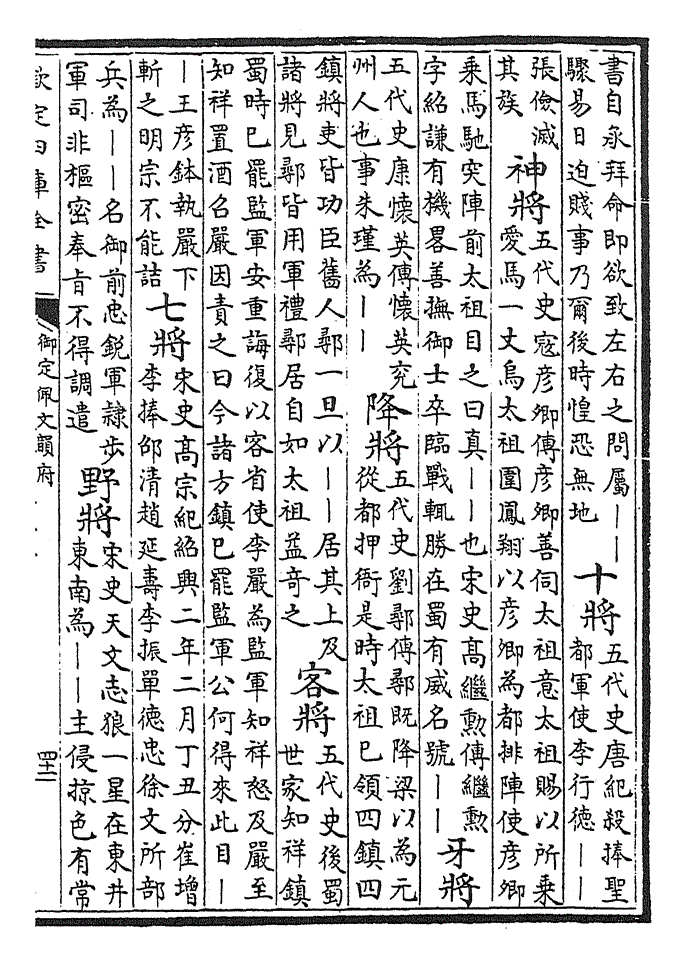 書自永拜命即欲致左右之問屬——
驟易日迫賤事乃爾後時惶恐無地
十將
五代史唐紀殺捧聖
都軍使李行德——
張儉滅
其族
神將
五代史寇彦卿傳彦卿善伺太祖意太祖賜以所乗
愛馬一丈烏太祖圍鳳翔以彦卿為都排陣使彦卿
乗馬馳突陣前太祖目之曰真——也宋史髙繼勲傳繼勲
字紹謙有機畧善撫御士卒臨戰輒勝在蜀有威名號——
牙將
五代史康懷英傳懷英兖
州人也事朱瑾為——
降將
五代史劉鄩傳鄩既降梁以為元
從都押衙是時太祖已領四鎮四
鎮將吏皆功臣舊人鄩一旦以——居其上及
諸將見鄩皆用軍禮鄩居自如太祖益竒之
客將
五代史後蜀
世家知祥鎮
蜀時已罷監軍安重誨復以客省使李嚴為監軍知祥怒及嚴至
知祥置酒召嚴因責之曰今諸方鎮已罷監軍公何得來此目—
—王彦銖執嚴下
斬之明宗不能詰
七將
宋史髙宗紀紹興二年二月丁丑分崔增
李捧邵清趙延壽李振單德忠徐文所部
兵為——名御前忠銳軍隷步
軍司非樞密奉旨不得調遣
野將
宋史天文志狼一星在東井
東南為——主侵掠色有常
欽定四庫全書
御定佩文韻府
四十二